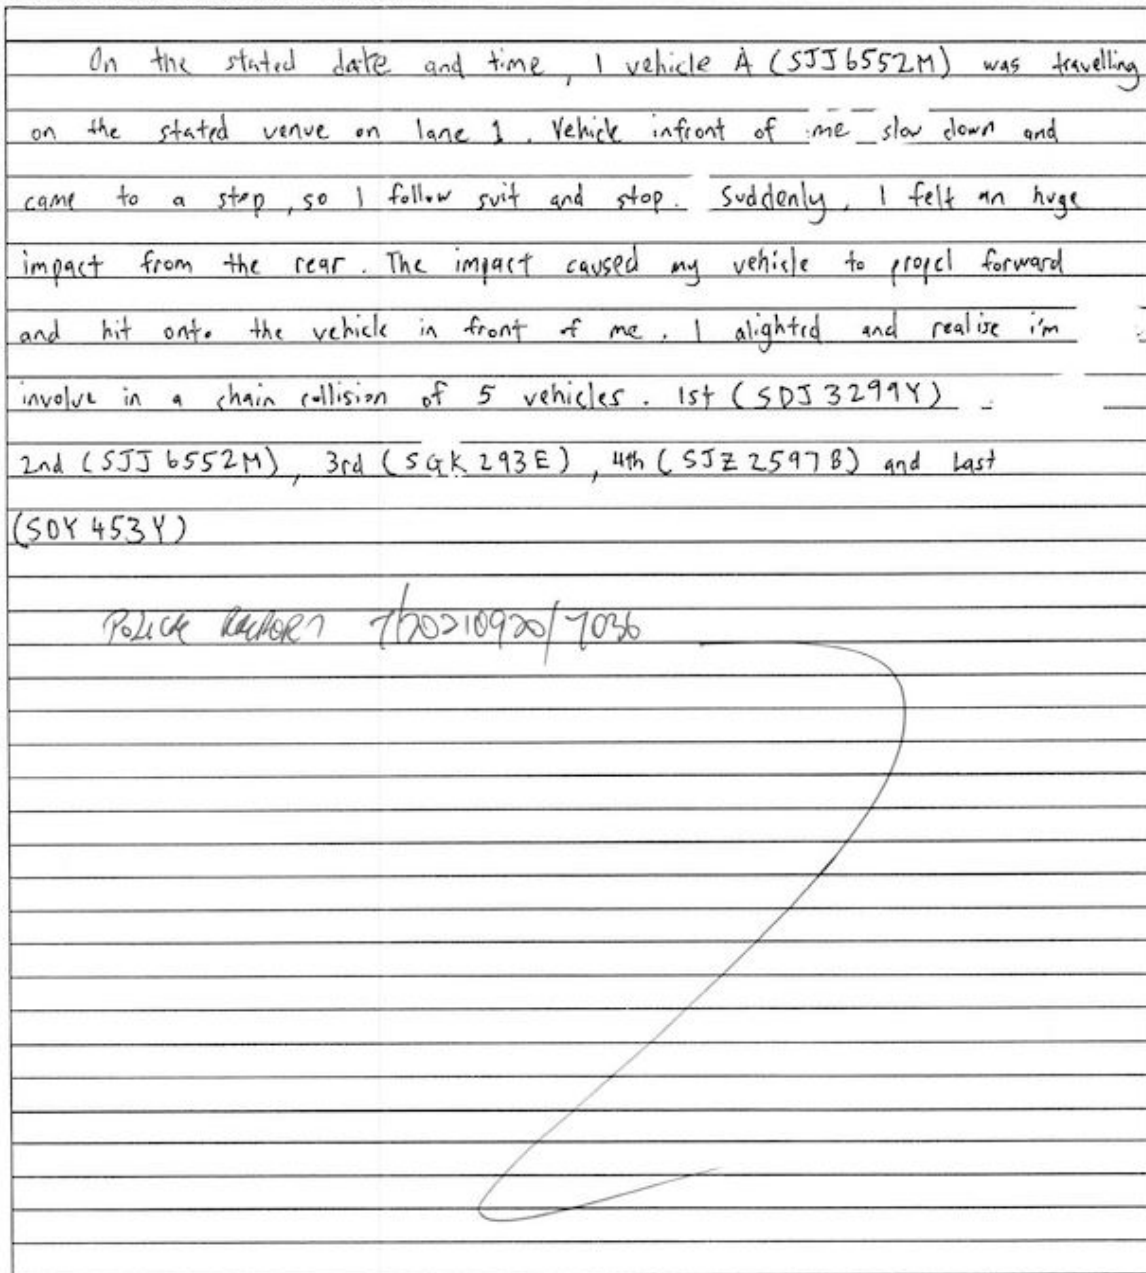 On the stated date and time, I vehicle A (SJJ6552M) was travelling
on the stated venue on lane 1. Vehicle infront of me slow down and
came to a stop, so I follow suit and stop. Suddenly, I felt an huge
impact from the rear. The impact caused my vehicle to propel forward
and hit onto the vehicle in front of me. I alighted and realise i'm
involve in a chain collision of 5 vehicles. 1st (SDJ3299Y)
2nd (SJJ6552M), 3rd (SGK293E), 4th (SJZ2597B) and Last
(SDY453Y)
POLICE REPORT T/20210920/7036